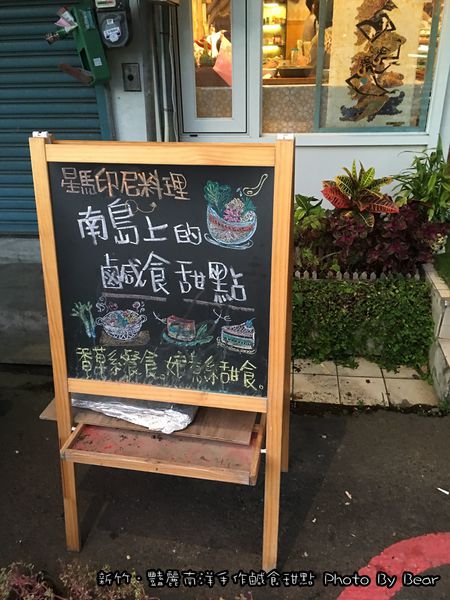 星馬印尼料理
南島上的
鹹食甜點
香草系餐食。娘惹系甜食。
新竹・豔麗南洋手作鹹食甜點 Photo By Bear